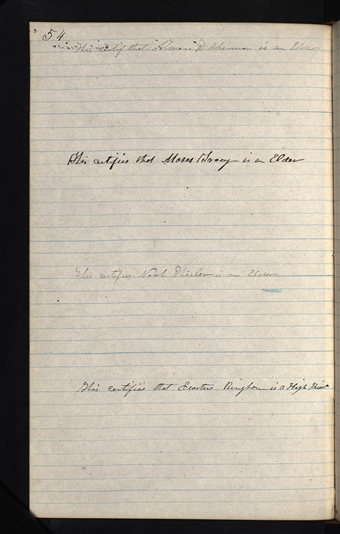 54
This certif that Lyman D Sherman is an Elder
This certifies that Moses Tracy is an Elder
This certifies Noah is an Elder
This certifies that Erastus Bingham is a High Priest